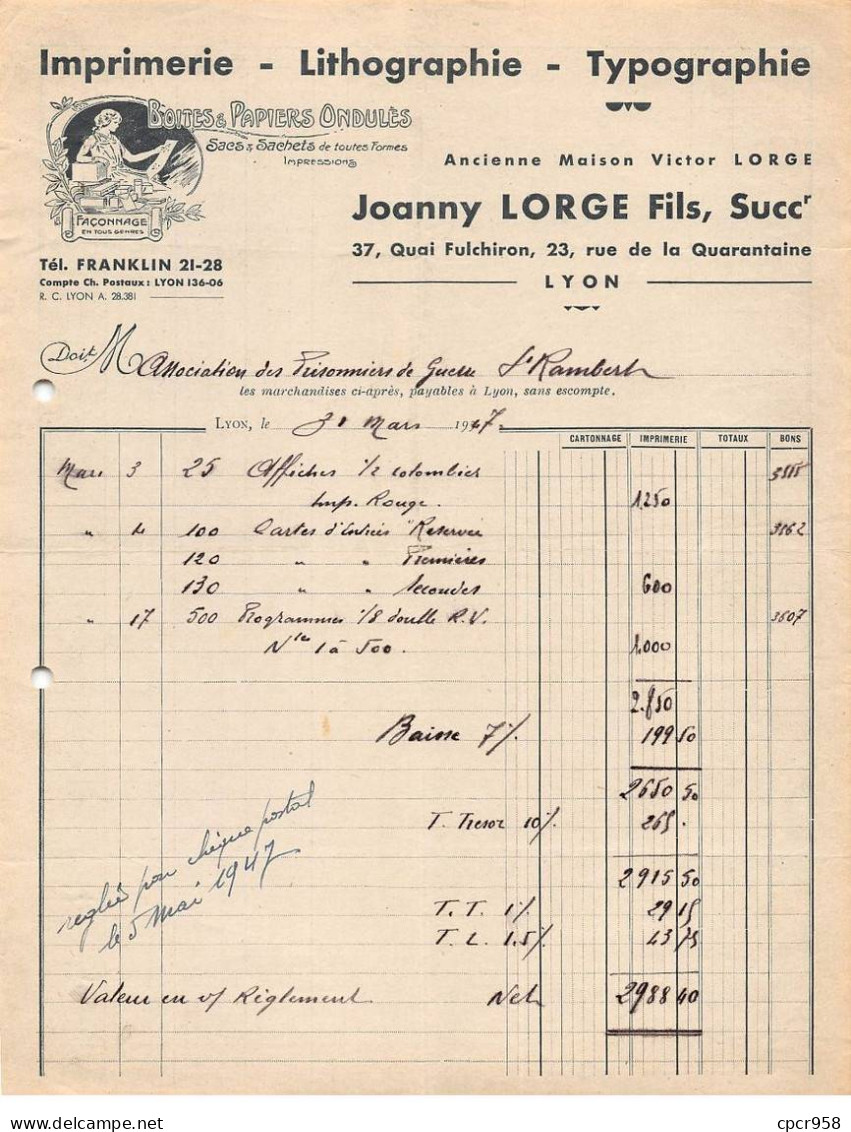 Imprimerie - Lithographie - Typographie
BOITES & PAPIERS ONDULÉS
Sacs & Sachets de toutes Formes
IMPRESSIONS
FAÇONNAGE
EN TOUS GENRES
Ancienne Maison Victor LORGE
Joanny LORGE Fils, Succr
37, Quai Fulchiron, 23, rue de la Quarantaine
LYON
Tél. FRANKLIN 21-28
Compte Ch. Postaux : LYON 136-06
R. C. LYON A. 28.381
Doit M Association des Prisonniers de Guerre St Rambert
les marchandises ci-après, payables à Lyon, sans escompte.
LYON, le 31 Mars 1947
CARTONNAGE IMPRIMERIE TOTAUX BONS
Mars 3 25 Affiches 1/2 colombier 3555
Imp. Rouge. 1.250
" 4 100 Cartes d'Entrées Reservée 3562
120 " " Premières
130 " " Secondes 600
" 17 500 Programmes 1/8 double R.V. 3607
Nos 1 à 500. 1.000
2.850
Baisse 7% 199 50
2650 50
T. Tresor 10% 265.
2915 50
T. T. 1% 29 15
T. L. 1.5% 43 75
réglée par chèque postal
le 5 Mai 1947
Valeur en v/ Règlement Net 2988 40
cpcr958